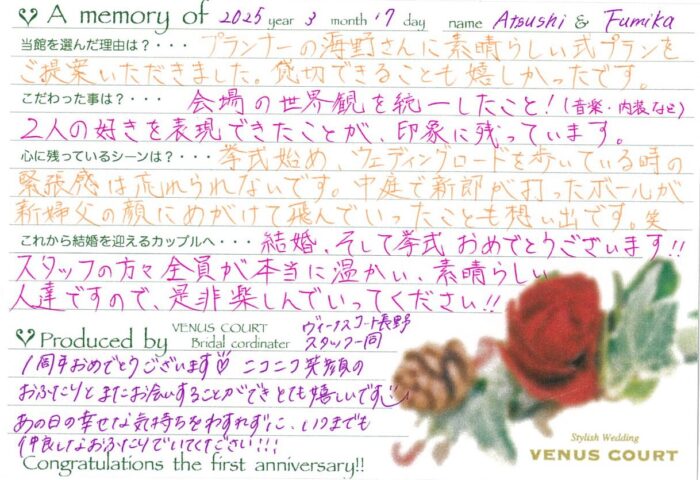 A memory of 2025 year 3 month 7 day name Atsushi & Fumika
当館を選んだ理由は？・・・ プランナーの海野さんに素晴らしい式プランを
ご提案いただきました。貸切できることも嬉しかったです。
こだわった事は？・・・ 会場の世界観を統一したこと！(音楽・内装など)
2人の好きを表現できたことが、印象に残っています。
心に残っているシーンは？・・・ 挙式始め、ウェディングロードを歩いている時の
緊張感は忘れられないです。中庭で新郎が打ったボールが
新婦父の顔にめがけて飛んでいったことも想い出です。笑
これから結婚を迎えるカップルへ・・・ 結婚、そして挙式 おめでとうございます!!
スタッフの方々全員が本当に温かい、素晴らしい
人達ですので、是非楽しんでいってください!!
Produced by VENUS COURT Bridal cordinater ヴィーナスコート長野 スタッフ一同
1周年おめでとうございます♡ ニコニコ笑顔の
おふたりとまたお会いすることができとても嬉しいです
あの日の幸せな気持ちをわすれずに、いつまでも
仲良しなおふたりでいてください!!!
Congratulations the first anniversary!!
Stylish Wedding
VENUS COURT